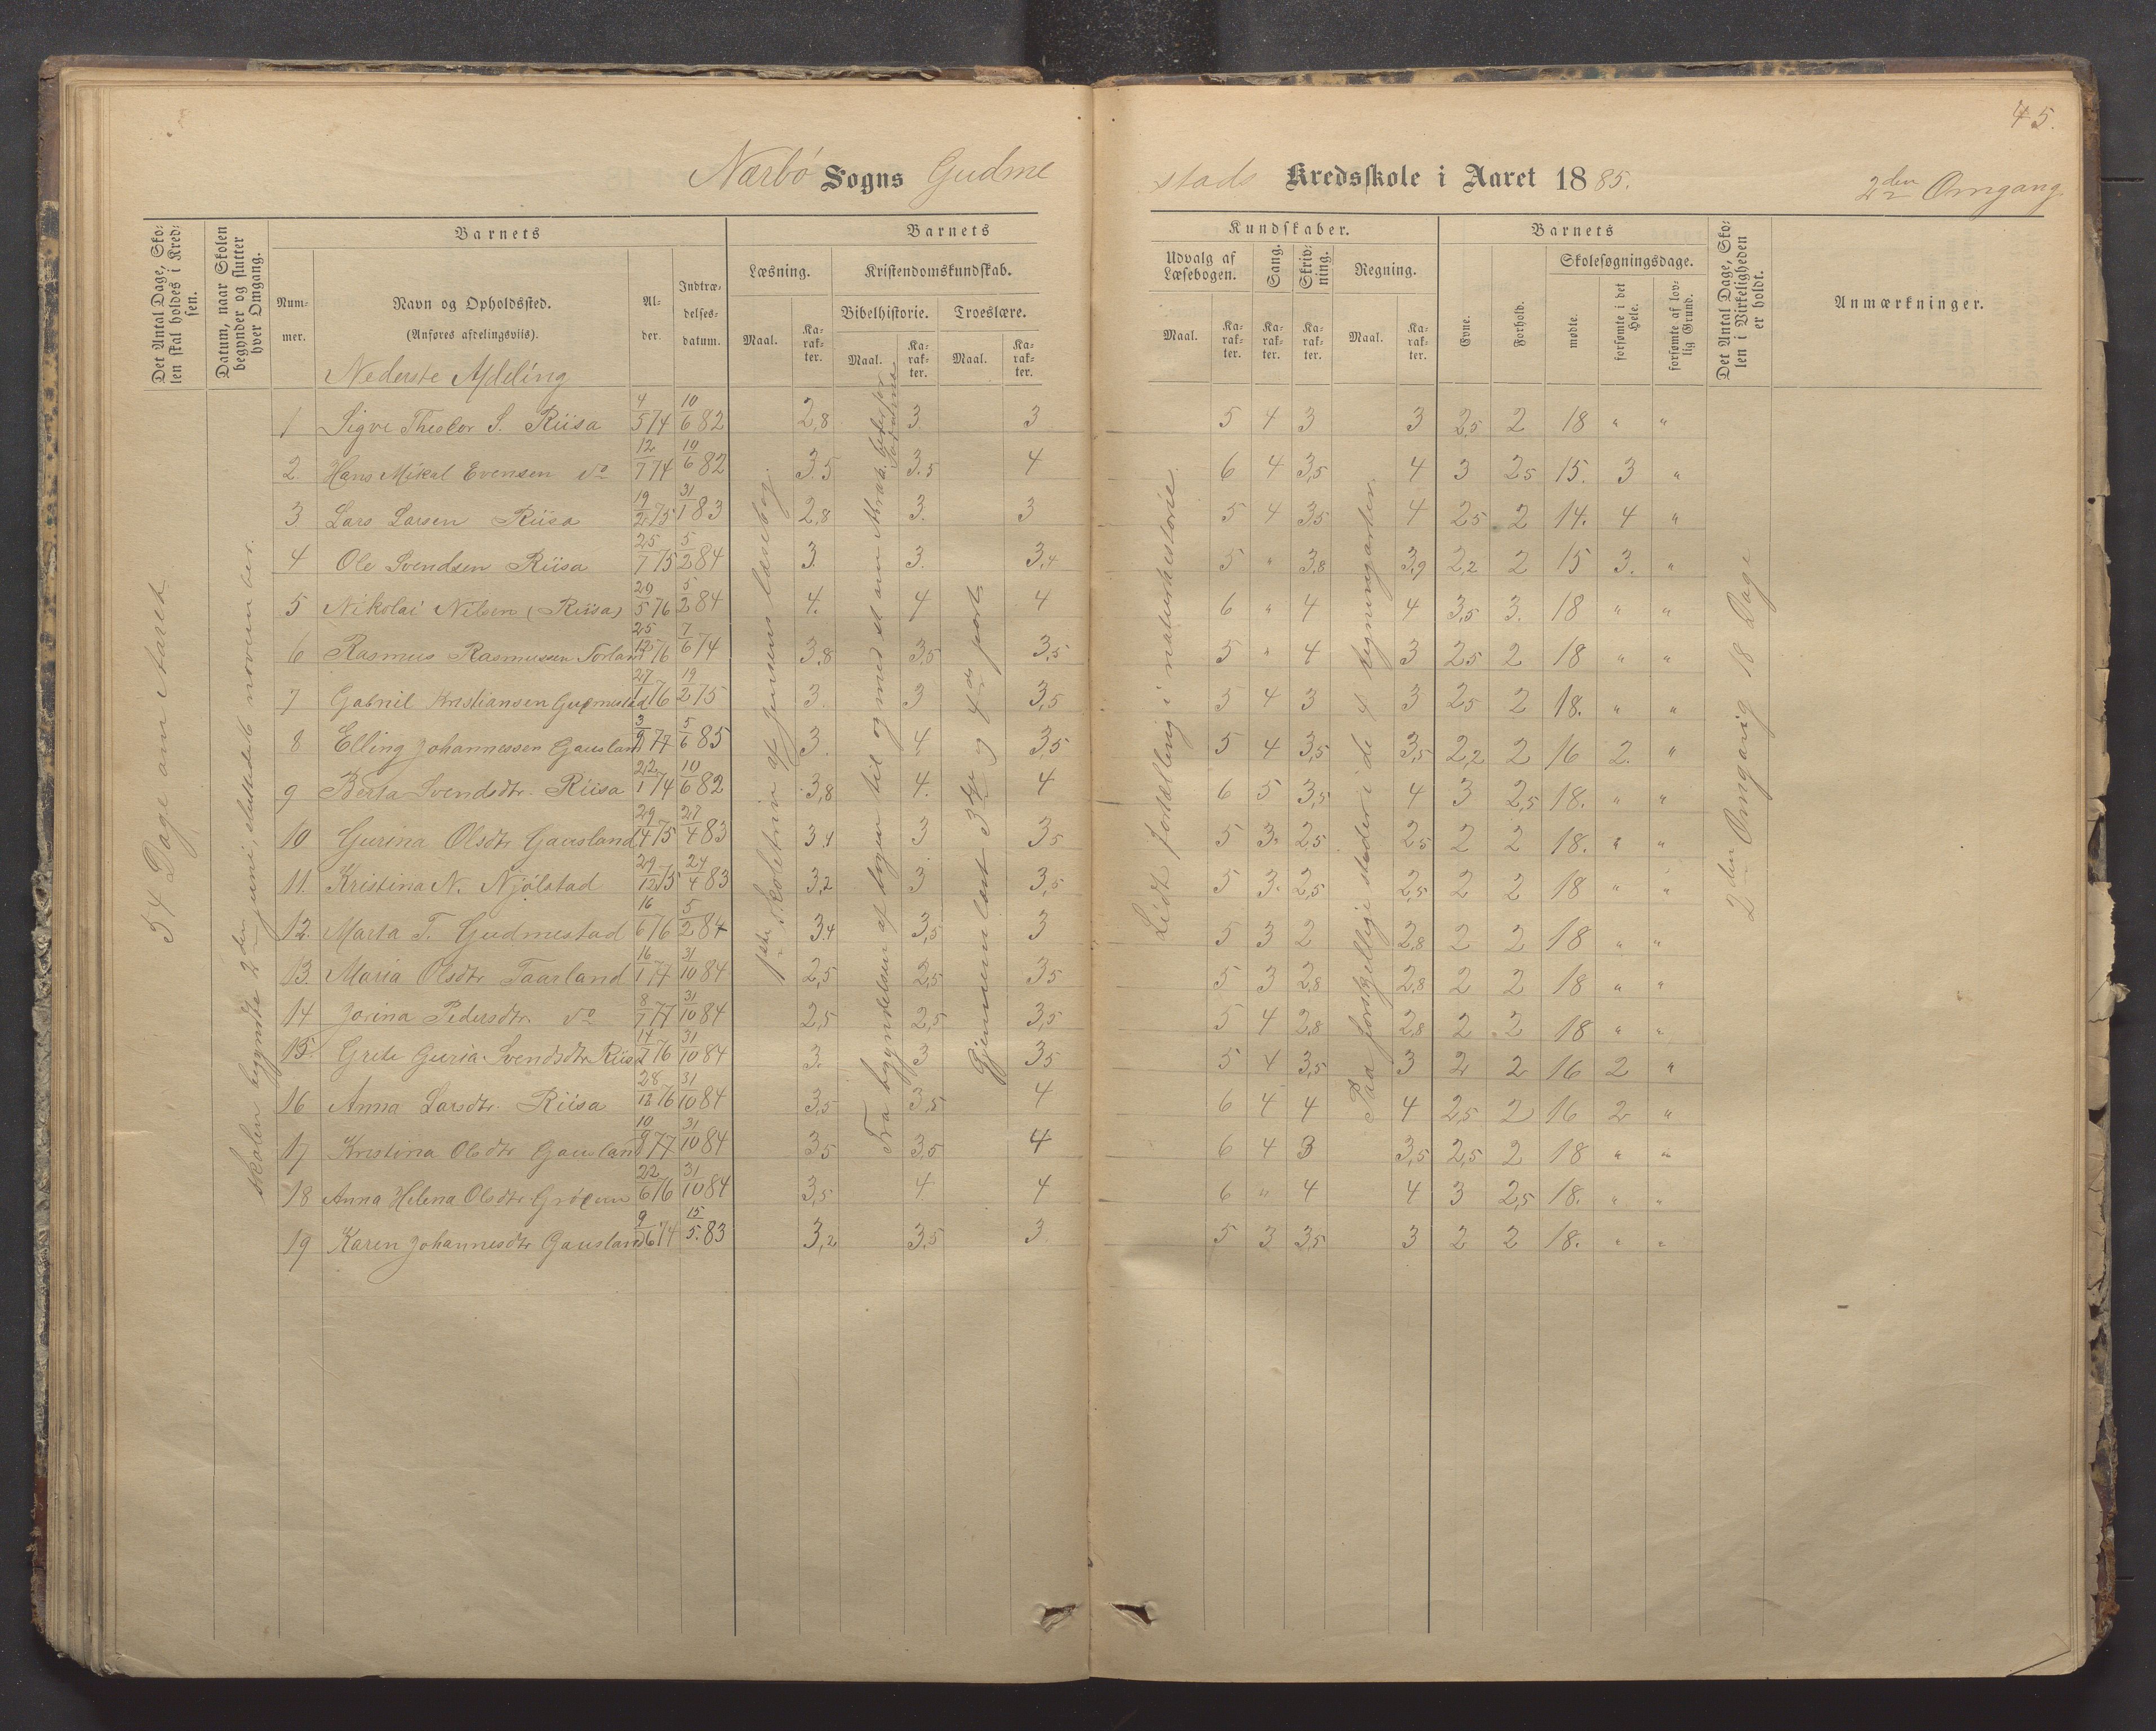 45.
Nærbö Sogns Gudme
stads Kredsskole i Aaret 1885. 2den Omgang
Det Antal Dage, Sko-
len skal holdes i Kred-
sen.
Datum, naar Skolen
begynder og slutter
hver Omgang.
Barnets
Num-
mer.
Navn og Opholdssted.
(Anføres afdelingsviis).
Al-
der.
Indtræ-
delses-
datum.
Barnets
Læsning.
Maal.
Ka-
rak-
ter.
Kristendomskundskab.
Bibelhistorie.
Maal.
Ka-
rak-
ter.
Troeslære.
Maal.
Ka-
rak-
ter.
Kundskaber.
Udvalg af
Læsebogen.
Maal.
Ka-
rak-
ter.
Sang.
Ka-
rak-
ter.
Skriv-
ning.
Ka-
rak-
ter.
Regning.
Maal.
Ka-
rak-
ter.
Barnets
Evne.
Forhold.
Skolesøgningsdage.
mødte.
forsømte i det
Hele.
forsømte af lov-
lig Grund.
Det Antal Dage, Sko-
len i Virkeligheden
er holdt.
Anmærkninger.
Nederste Afdeling
54 Dage om Aaret
skolen begyndte 2den juni, sluttede novem ber.
1ste skoletrin af Jensens læsebog.
Fra begyndelsen af bogen til og med
Gjennemlæst 3die og 4de part
Lidt fortælling i naturhistorie
Paa forskjellige steder i de 4 regningsarter.
2den Omgang 18 Dage
1 Sigve Theodor S. Riisa 4/5 74 10/6 82 2,8 3. 3 5 4 3 3 2,5 2 18 " "
2 Hans Mikal Evensen do 12/7 74 10/6 82 3.5 3.5 4 6 4 3,5 4 3 25 15. 3 "
3 Lars Larsen Riisa 19/2 75 31/1 83 2,8 3. 3 5 4 3,5 4 25 2 14. 4 "
4 Ole Svendsen Riisa 25/7 75 5/2 84 3. 3. 3,4 5 " 3.8 3,9 2,2 2 15 3. "
5 Nikolai Nilsen (Riisa) 29/5 76 5/2 84 4. 4 4 6 " 4 4 3,5 3. 18 " "
6 Rasmus Rasmussen Torland 25/12 76 7/6 74 3,8 3,5 3,5 5 " 4 3 25 2 18 " "
7 Gabriel Kristiansen Gudmestad 27/1 76 19/2 75 3. 3 3,5 5 4 3 3 25 2 18. " "
8 Elling Johannessen Gausland 3/9 77 5/6 85 3. 4 3,5 5 4 3,5 3,5 2,2 2 16 2. "
9 Berta Svendsdtr. Riisa 22/1 74 10/6 82 3,8 4. 4 6 5 3,5 4 3 2,5 18. " "
10 Gurina Olsdtr Gausland 29/4 75 27/4 83 3.1 3 35 5 3. 25 25 2 2 18. " "
11. Kristina N. Njölstad 29/12 75 24/4 83 3,2 3 3,5 5 3. 2,5 2,5 2 2 18 " "
12. Marta T. Gudmestad 16/6 76 5/2 84 3.4 3,5 3 5 3 2 2,8 2 2 18 " "
13. Maria Olsdtr Taarland 16/1 77 31/10 84 2,5 2,5 35 5 3 2,8 2,8 2 2 18 " "
14 Jorina Pedersdtr. do 8/7 77 31/10 84 2,5 2,5 3,5 5 4 2,8 2,8 2 2 18 " "
15. Grete Guria Svendsdtr Riisa 14/7 76 31/10 84 3. 3 35 5 4 3,5 3 2 2 16 2 "
16 Anna Larsdtr. Riisa 28/12 76 31/10 84 3,5 3,5 4 6 4 4 4 2,5 2 16 2 "
17 Kristina Olsdtr Gausland 10/9 77 31/10 84 3,5 3,5 4 6 4 3 3,5 2,5 2 18 " "
18 Anna Helena Olsdtr Gröeim 22/6 76 31/10 84 3,5 4. 4 6 " 4 4 3 2,5 18. " "
19 Karen Johannesdtr Gausland 9/6 74 15/5 83 3,2 3,5 3. 5 3 3,5 3 2 2 18. " "